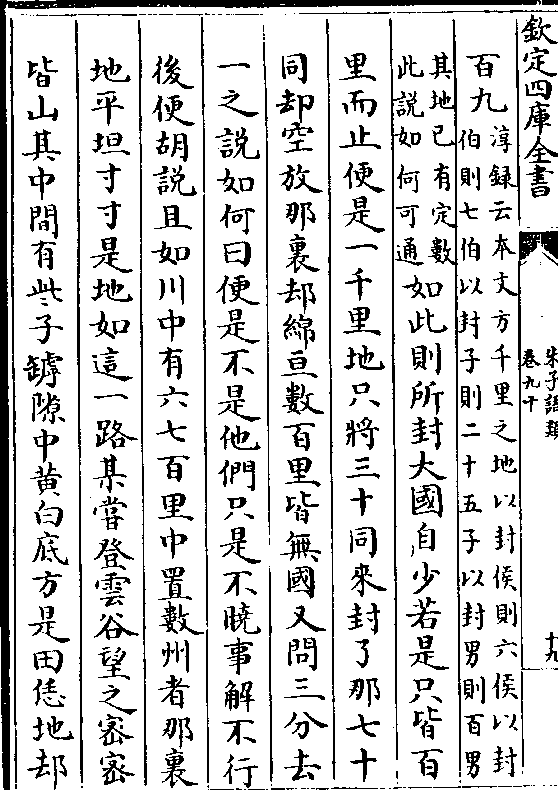 欽定四庫全書
朱子語類
卷九十
十九
百九
淳録云本文方千里之地以封侯則六侯以封
伯則七伯以封子則二十五子以封男則百男
其地已有定數
此説如何可通
如此則所封大國自少若是只皆百
里而止便是一千里地只將三十同來封了那七十
同却空放那裏却綿亘數百里皆無國又問三分去
一之説如何曰便是不是他們只是不曉事解不行
後便胡説且如川中有六七百里中置數州者那裏
地平坦寸寸是地如這一路某嘗登雲谷望之密密
皆山其中間有些子罅隙中黄白底方是田恁地却